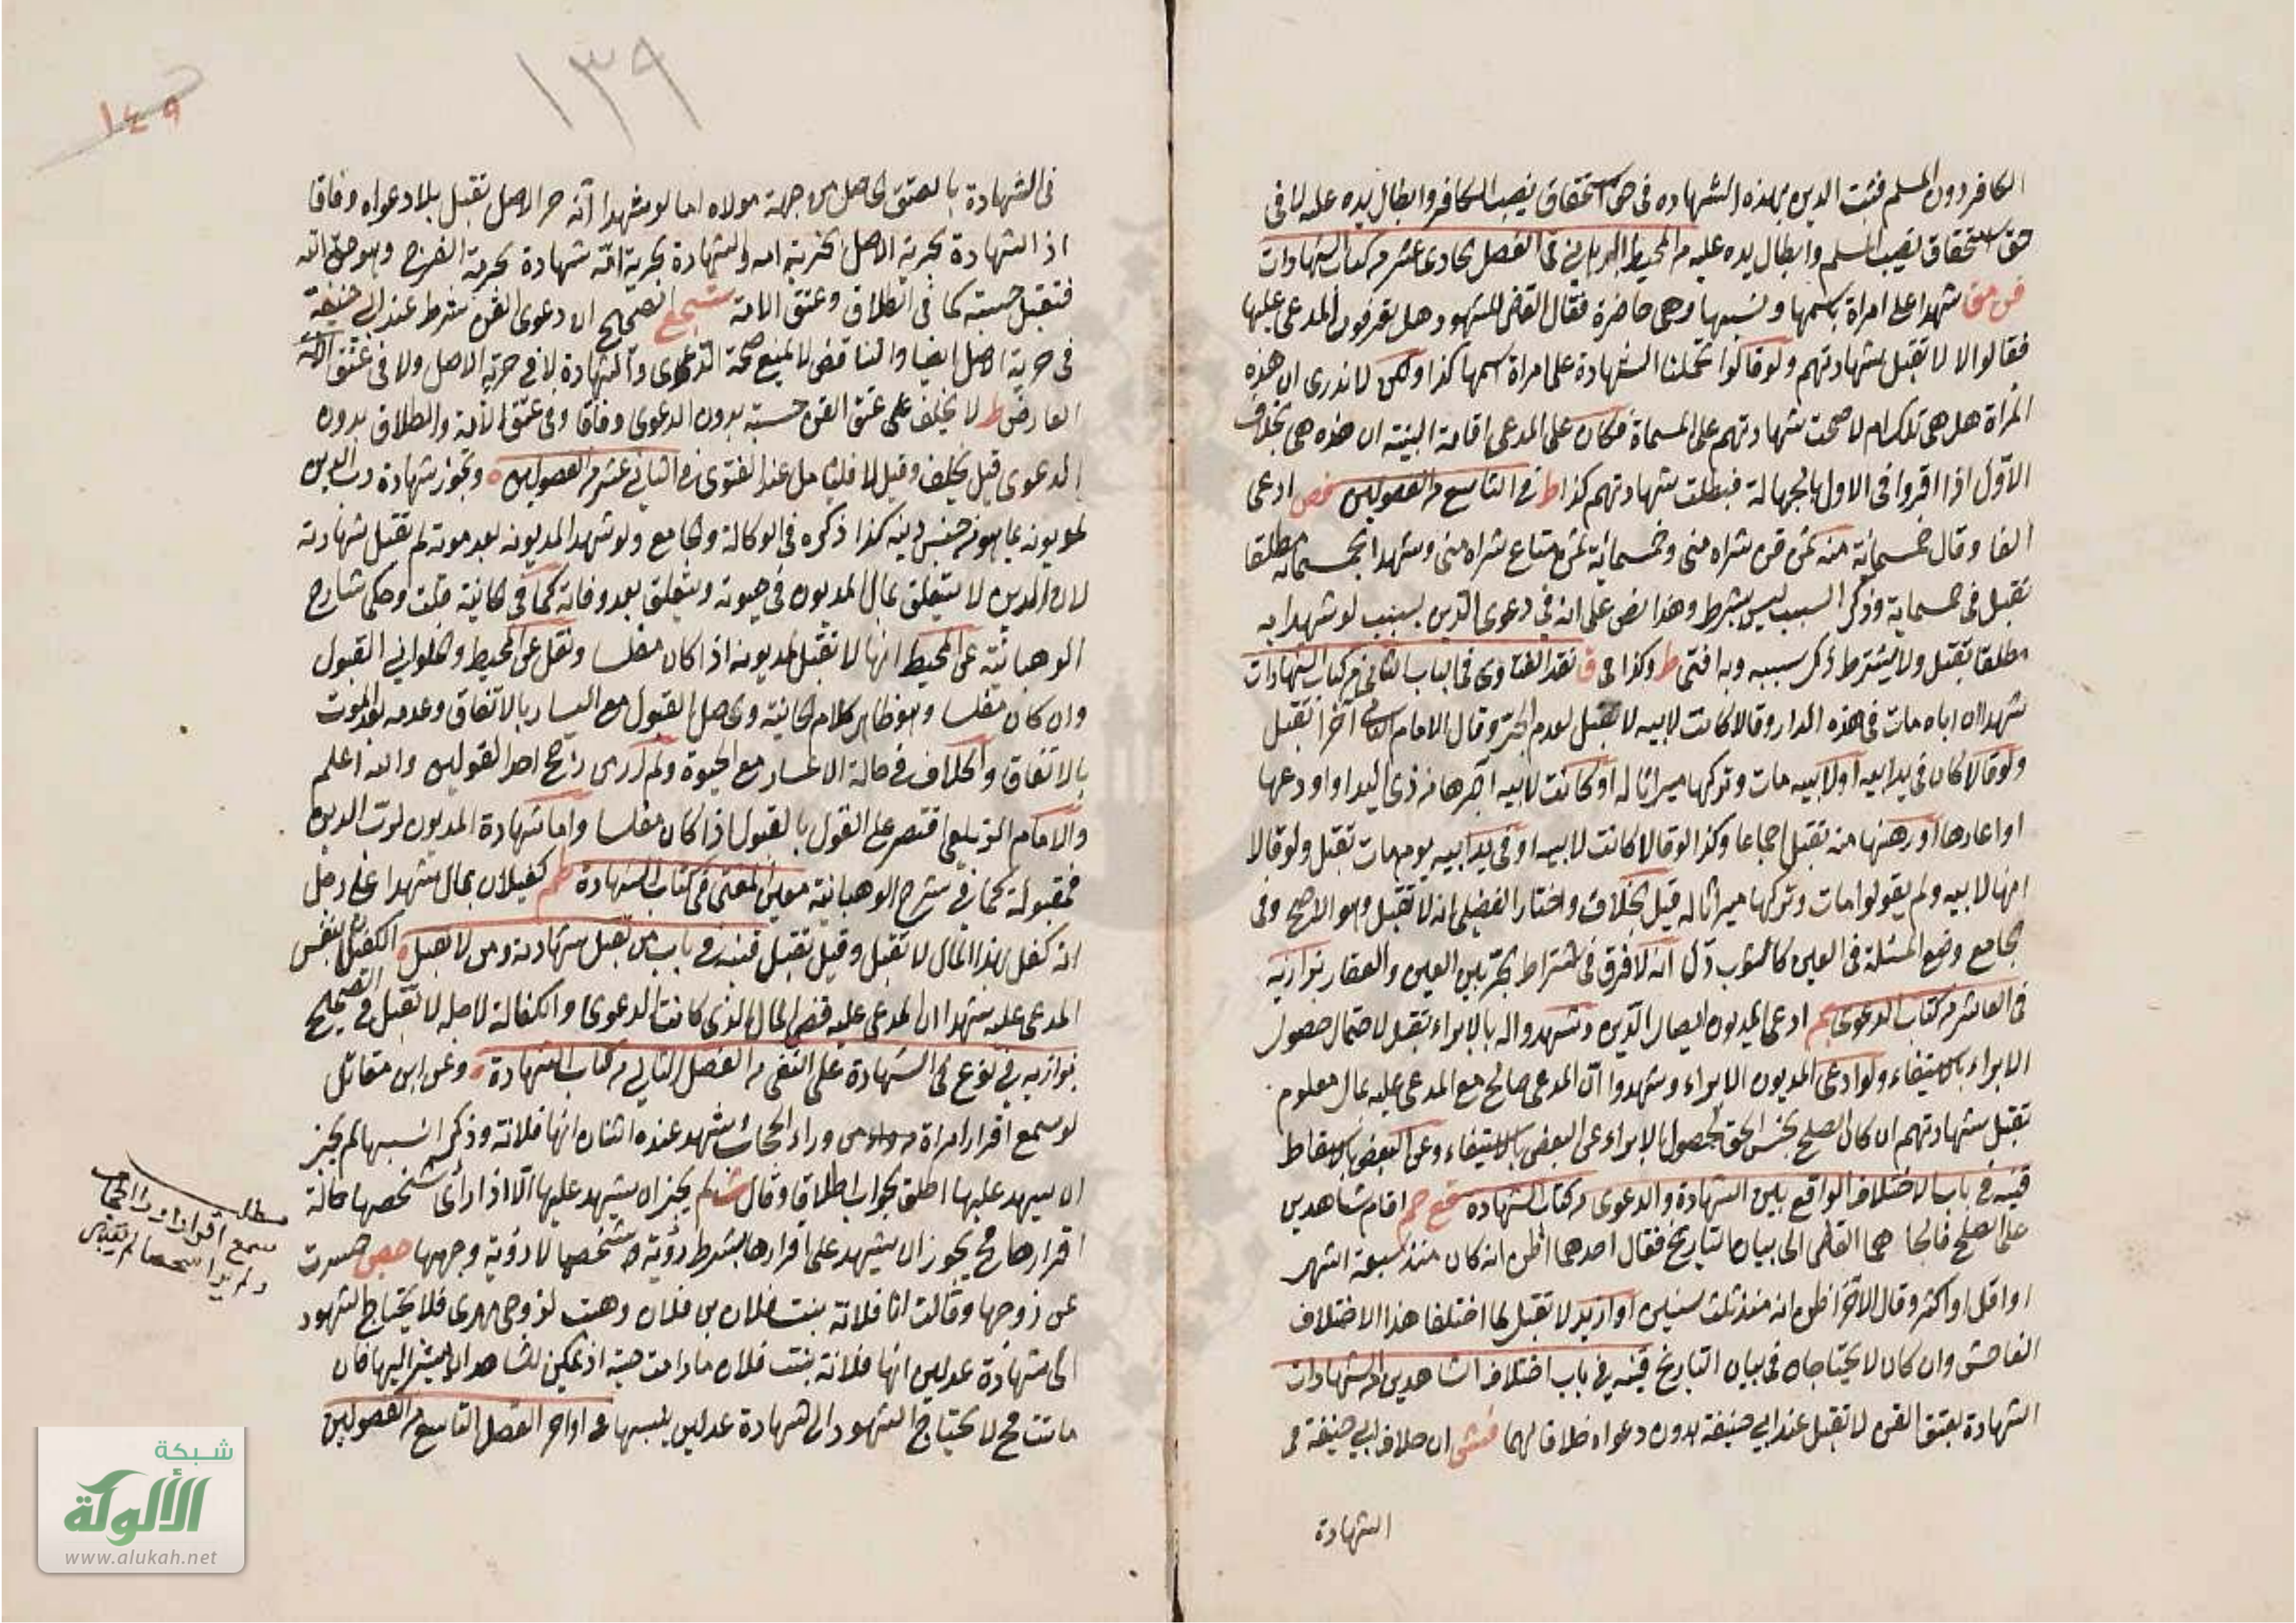 الكافر دون المسلم فثبت الدين بهذه الشهادة في حق استحقاق نصيب الكافر وابطال يده عليه لا في
حق استحقاق نصيب المسلم وابطال يده عليه من المحيط البرهاني في الفصل الحادي عشر من كتاب الشهادات
شهدا على امراة باسمها ونسبها وهي حاضرة فقال القاضي للشهود هل تعرفون المدعى عليها
فقالوا لا لا تقبل شهادتهم ولو قالوا تحملنا الشهادة على امراة اسمها كذا ولكن لا ندري ان هذه
المراة هل هي تلك ام لا صحت شهادتهم على المسماة فكان على المدعي اقامة البينة ان هذه هي بخلاف
الاول اذا اقروا في الاول بالجهالة فبطلت شهادتهم كذا ط في التاسع من الفصولين ادعى
الفا وقال خمسمائة منه ثمن قن شراه مني وخمسمائة ثمن متاع شراه مني وشهدا بخمسمائة مطلقا
تقبل في خمسماية وذكر السبب ليس بشرط وهذا نص على انه في دعوى الدين بسبب لو شهدا به
مطلقا تقبل ولا يشترط ذكر سببه وبه افتى ط وكذا في ق نقد الفتاوى في الباب الثاني من كتاب الشهادات
شهدا ان اباه مات في هذه الدار وقالا كانت لابيه لا تقبل لعدم الجر وقال الامام الثاني آخرا تقبل
ولو قالا كان في يد ابيه او لابيه مات وتركها ميراثا له او كانت لابيه آجرها من ذي اليد او اودعها
او اعارها او رهنها منه تقبل اجماعا وكذا لو قالا كانت لابيه او في يد ابيه يوم مات تقبل ولو قالا
انها لابيه ولم يقولوا مات وتركها ميراثا له قيل بخلاف واختار الفضلي انه لا تقبل وهو الاصح وفي
الجامع وضع المسئلة في العين كالثوب دل انه لا فرق في اشتراط الجر بين العين والعقار بزازيه
في العاشر من كتاب الدعوى ادعى المديون ايصال الدين وشهدوا له بالابراء تقبل لاحتمال حصول
الابراء بالاستيفاء ولو ادعى المديون الابراء وشهدوا ان المدعي صالح مع المدعى عليه بمال معلوم
تقبل شهادتهم ان كان الصلح بجنس الحق لحصول الابراء عن البعض بالاستيفاء وعن البعض بالاسقاط
قنيه في باب الاختلاف الواقع بين الشهادة والدعوى من كتاب الشهادة اقام شاهدين
على الصلح فالجاهما القاضي الى بيان التاريخ فقال احدهما اظن انه كان منذ سبعة اشهر
او اقل او اكثر وقال الاخر اظن انه منذ ثلث سنين او ازيد لا تقبل لما اختلفا هذا الاختلاف
الفاحش وان كان لا يحتاجان في بيان التاريخ قنيه في باب اختلاف الشاهدين من الشهادات
الشهادة بعتق القن لا تقبل عند ابي حنيفة بدون دعواه خلافا لهما ان خلاف ابي حنيفة في
الشهادة
١٣٩
١٤٩
في الشهادة بالعتق الحاصل من جهة مولاه اما لو شهدا انه حر الاصل تقبل بلا دعواه وفاقا
اذ الشهادة بحرية الاصل بحرية امه والشهادة بحرية امه شهادة بحرية الفرج وهو حق الله
فتقبل حسبة كما في الطلاق وعتق الامة الصحيح ان دعوى القن شرط عند ابي حنيفة
في حرية الاصل ايضا والتناقض لا يمنع صحة الدعوى والشهادة لا في حرية الاصل ولا في عتق
العارض ط لا يحلف على عتق القن حسبة بدون الدعوى وفاقا وفي عتق الامة والطلاق بدون
الدعوى قيل يحلف وقيل لا فليتامل عند الفتوى في الثاني عشر من الفصولين وتجوز شهادة رب الدين
لمديونه بما هو من جنس دينه كذا ذكره في الوكالة والجامع ولو شهد لمديونه بعد موته لم تقبل شهادته
لان الدين لا يتعلق بمال المديون في حيوته ويتعلق بعد وفاته كما في الخانية قلت وحكى شارح
الوهبانية عن المحيط انها لا تقبل لمديونه اذا كان مفلسا ونقل عن المحيط والحلواني القبول
وان كان مفلسا وهو ظاهر كلام الخانية والحاصل القبول مع اليسار بالاتفاق وعدمه بعد الموت
بالاتفاق والخلاف في حالة الاعسار مع الحيوة ولم ار من رجح احد القولين والله اعلم
والامام الزيلعي اقتصر على القول بالقبول اذا كان مفلسا واما شهادة المديون لرب الدين
فمقبولة كما في شرح الوهبانية معين المفتي في كتاب الشهادة كفيلان بمال شهدا على رجل
انه كفل بهذا المال لا تقبل وقيل تقبل قنيه في باب من تقبل شهادته ومن لا تقبل الكفيل بنفس
المدعى عليه شهدا ان المدعى عليه قضى المال الذي كانت الدعوى والكفالة لاجله لا تقبل في الصحيح
بزازيه في نوع في الشهادة على النفي من الفصل الثاني من كتاب الشهادة وعن ابن مقاتل
لو سمع اقرار امراة من وراء الحجاب شهد عنده اثنان انها فلانة وذكرا نسبها لم يجز
ان يشهد عليها اطلق الجواب اطلاقا وقال لم يجز ان يشهد عليها الا اذا راى شخصها حالة
اقرارها فح يجوز ان يشهد على اقرارها بشرط رؤية شخصها لا رؤية وجهها حسرت
عن وجهها وقالت انا فلانة بنت فلان بن فلان وهبت لزوجي مهري فلا يحتاج الشهود
الى شهادة عدلين انها فلانة بنت فلان ما دامت حية اذ يمكن للشاهد ان يشير اليها فان
ماتت فح لا يحتاج الشهود الى شهادة عدلين بنسبها في اواخر الفصل التاسع من الفصولين
مطلب
سمع اقرارا وراء الحجاب
ولم ير شخصها لم تقبل
شبكة
الألوكة
www.alukah.net